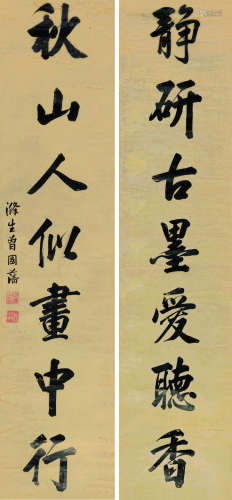 静研古墨愛聽香
秋山人似畫中行
滌生曾國藩